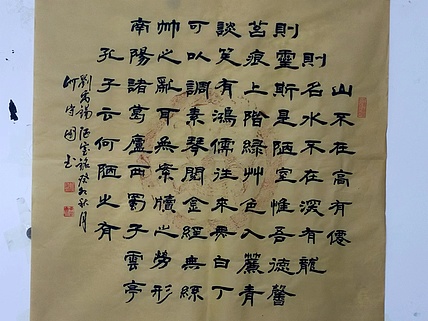 山不在高有僊
則名水不在深有龍
則靈斯是陋室惟吾德馨
苔痕上階綠艸色入簾青
談笑有鴻儒往來無白丁
可以調素琴閲金經無絲
竹之亂耳無案牘之勞形
南陽諸葛廬西蜀子雲亭
孔子云何陋之有
劉禹錫陋室銘癸卯秋月
守國書